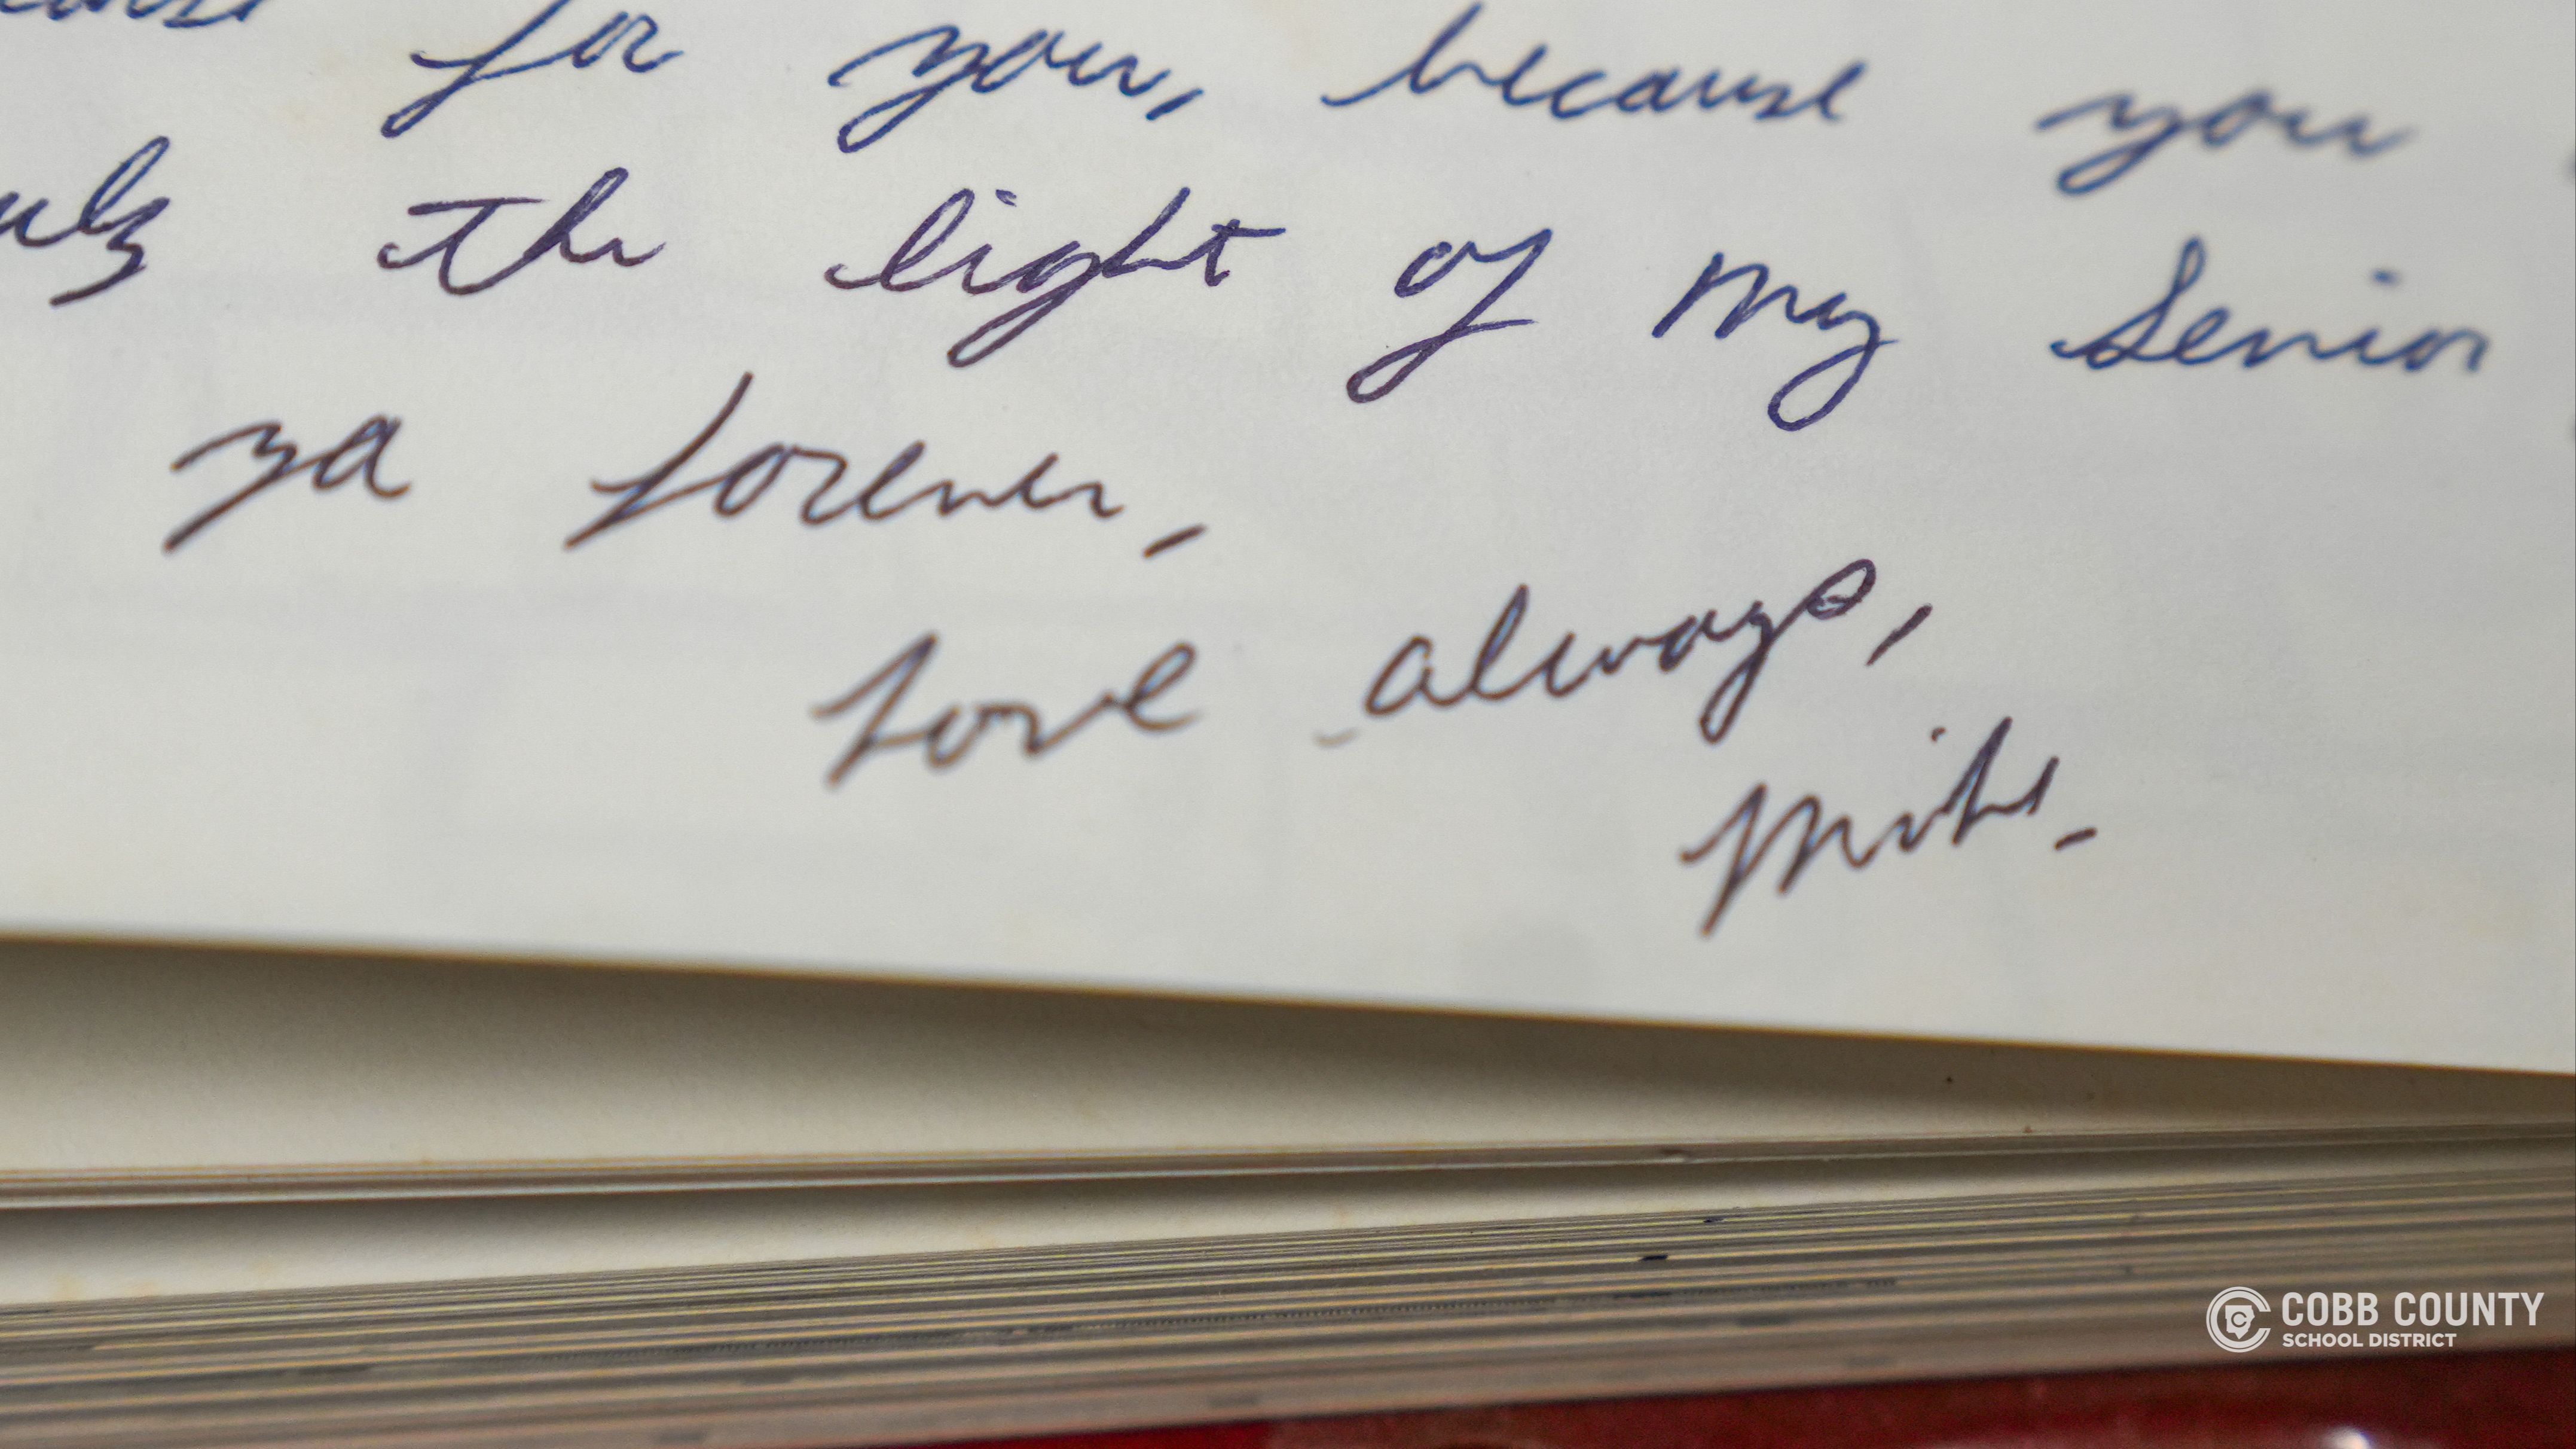 for you, because you
the light of my senior
ya forever,
Love always,
Mike.
COBB COUNTY
SCHOOL DISTRICT